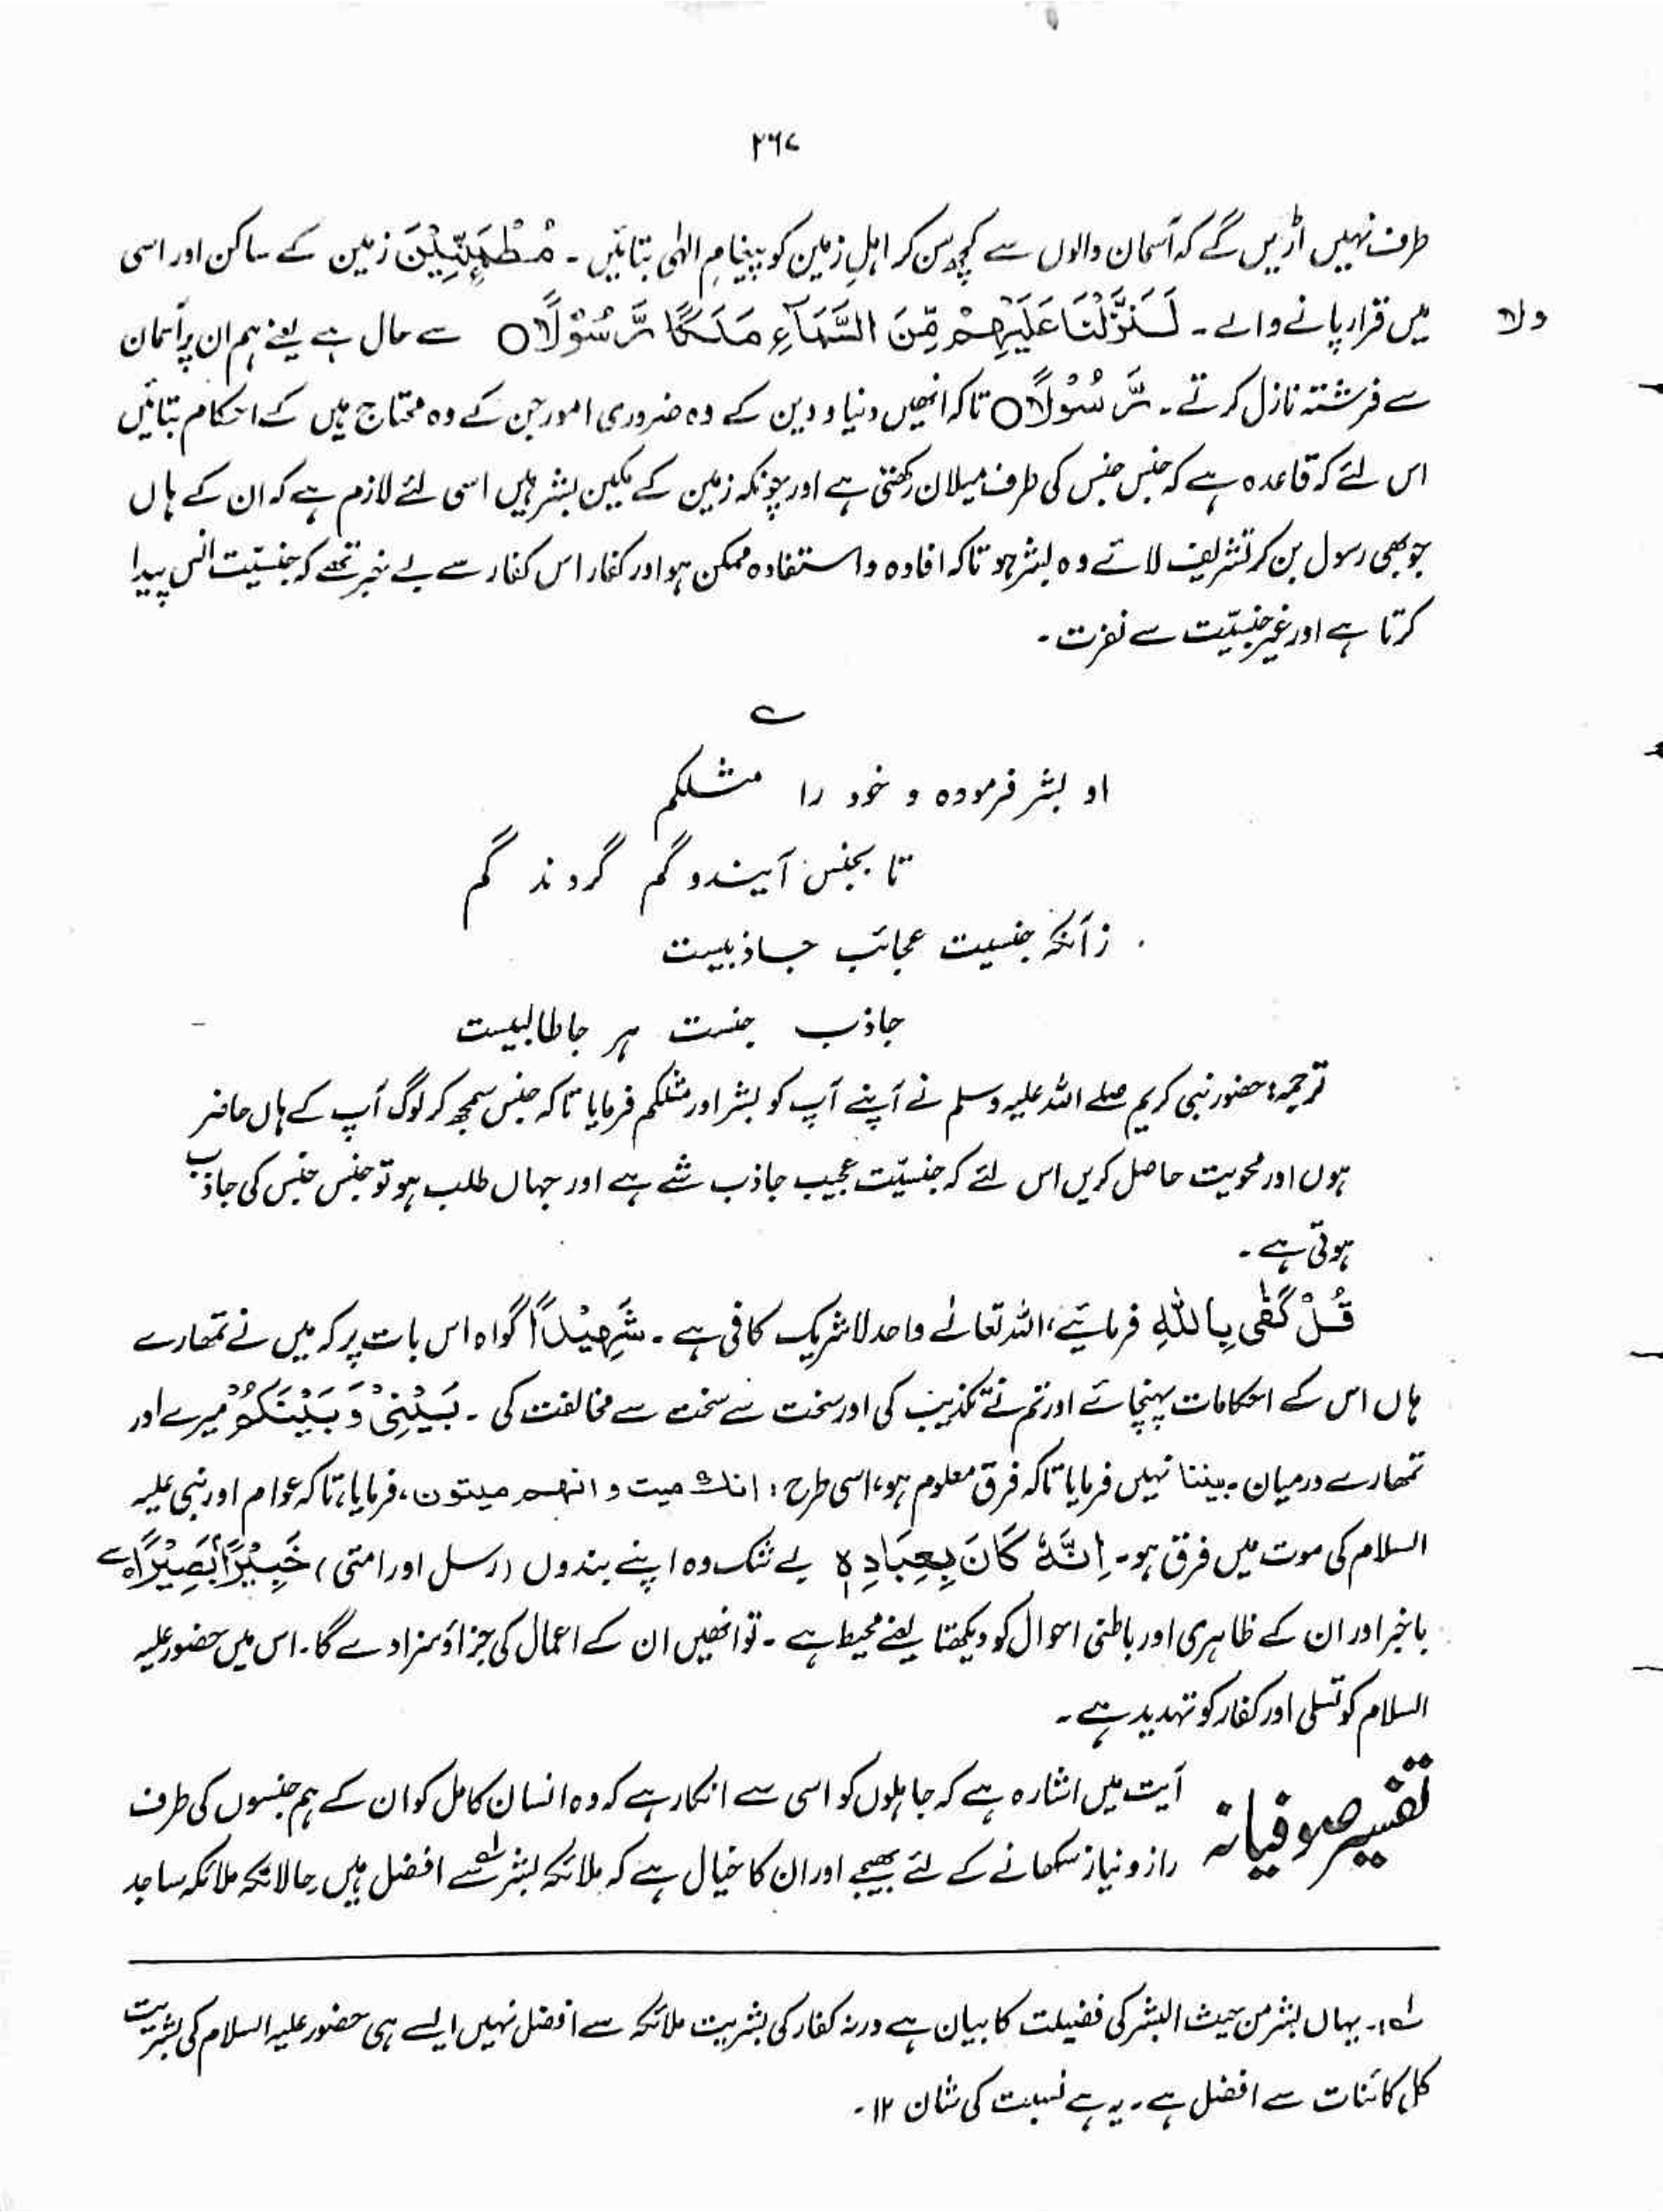 ۲۶۷
طرف نہیں اڑیں گے کہ آسمان والوں سے کچھ سن کر اہلِ زمین کو پیغامِ الٰہی بتائیں ۔ مُطْمَئِنِّیْنَ زمین کے ساکن اور اسی
میں قرار پانے والے ۔ لَنَزَّلْنَا عَلَیْهِمْ مِّنَ السَّمَآءِ مَلَكًا رَّسُوْلًا○ سے حال ہے یعنے ہم ان پر آسمان
سے فرشتہ نازل کرتے ۔ رَّسُوْلًا○ تاکہ انھیں دنیا و دین کے وہ ضروری امور جن کے وہ محتاج ہیں کے احکام بتائیں
اس لئے کہ قاعدہ ہے کہ جنس جنس کی طرف میلان رکھتی ہے اور چونکہ زمین کے مکین بشر ہیں اسی لئے لازم ہے کہ ان کے ہاں
جو بھی رسول بن کر تشریف لائے وہ بشر ہو تاکہ افادہ و استفادہ ممکن ہو اور کفار اس کفار سے بے خبر تھے کہ جنسیّت انس پیدا
کرتا ہے اور غیر جنسیّت سے نفرت ۔
؎
او بشر فرمودہ و خود را مثلکم
تا بجنس آیند و گم گردند گم
زآنکہ جنسیت عجائب جاذبیست
جاذب جنست ہر جا طالبیست
ترجمہ: حضور نبی کریم صلے اللہ علیہ وسلم نے اپنے آپ کو بشر اور مثلکم فرمایا تاکہ جنس سمجھ کر لوگ آپ کے ہاں حاضر
ہوں اور محویت حاصل کریں اس لئے کہ جنسیّت عجیب جاذب شے ہے اور جہاں طلب ہو تو جنس جنس کی جاذب
ہوتی ہے ۔
قُلْ كَفٰى بِاللّٰهِ فرمائیے، اللہ تعالٰے واحد لا شریک کافی ہے ۔ شَهِیْدًۢا گواہ اس بات پر کہ میں نے تمھارے
ہاں اس کے احکامات پہنچائے اور تم نے تکذیب کی اور سخت سے سخت سے مخالفت کی ۔ بَیْنِیْ وَ بَیْنَكُمْ میرے اور
تمھارے درمیان ۔ بیننا نہیں فرمایا تاکہ فرق معلوم ہو، اسی طرح : انك میت و انهم میتون، فرمایا، تاکہ عوام اور نبی علیہ
السلام کی موت میں فرق ہو ۔ اِنَّهٗ كَانَ بِعِبَادِهٖ بے شک وہ اپنے بندوں (رسل اور امتی) خَبِیْرًۢا بَصِیْرًا○ سے
باخبر اور ان کے ظاہری اور باطنی احوال کو دیکھتا یعنے محیط ہے ۔ تو انھیں ان کے اعمال کی جزاؤ سزا دے گا ۔ اس میں حضور علیہ
السلام کو تسلی اور کفار کو تہدید ہے ۔
تفسیر صوفیانہ آیت میں اشارہ ہے کہ جاہلوں کو اسی سے انکار ہے کہ وہ انسان کامل کو ان کے ہم جنسوں کی طرف
راز و نیاز سکھانے کے لئے بھیجے اور ان کا خیال ہے کہ ملائکہ بشر لہ سے افضل ہیں حالانکہ ملائکہ ساجد
لہ :۔ یہاں بشر من حیث البشر کی فضیلت کا بیان ہے ورنہ کفار کی بشریت ملائکہ سے افضل نہیں ایسے ہی حضور علیہ السلام کی بشریت
کل کائنات سے افضل ہے ۔ یہ ہے نسبت کی شان ۱۲ ۔